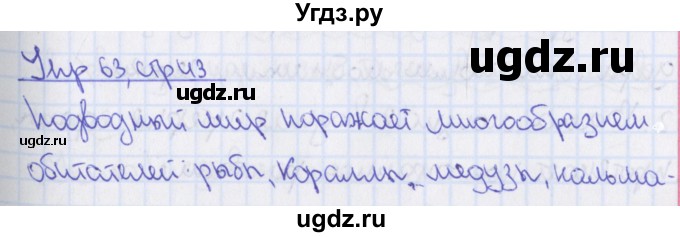 Угдз.ру
Упр 63, стр 43
Подводный мир поражает многообразием
обитателей: рыбы, кораллы, медузы, кальма-
ugdz.ru
ugdz.ru
ugdz.ru
ugdz.ru
ugdz.ru
ugdz.ru